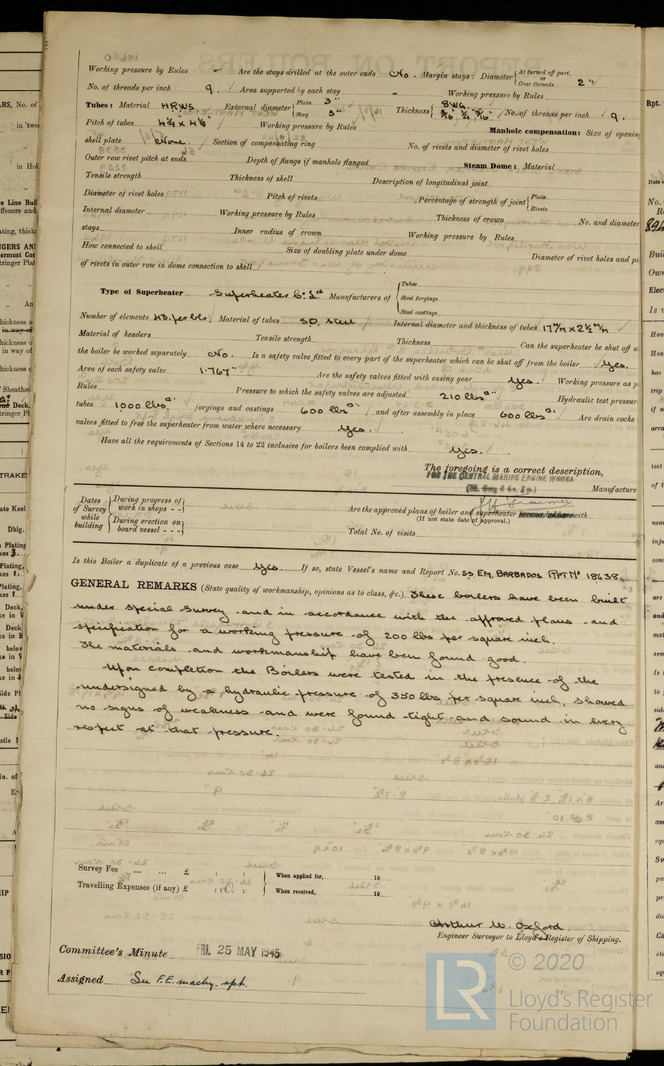 Working pressure by Rules - Are the stays drilled at the outer ends No. Margin stays: Diameter { At turned off part, or Over threads 2"
No. of threads per inch 9. Area supported by each stay - Working pressure by Rules
Tubes: Material H.R.W.S. External diameter { Plain 3" Stay 3" Thickness { 8WG No. of threads per inch 9.
Pitch of tubes 4¼ x 4⅛" Working pressure by Rules Manhole compensation: Size of opening
shell plate None Section of compensating ring No. of rivets and diameter of rivet holes
Outer row rivet pitch at ends Depth of flange if manhole flanged Steam Dome: Material
Tensile strength Thickness of shell Description of longitudinal joint
Diameter of rivet holes Pitch of rivets Percentage of strength of joint { Plate Rivets
Internal diameter Working pressure by Rules Thickness of crown No. and diameter
stays Inner radius of crown Working pressure by Rules
How connected to shell Size of doubling plate under dome Diameter of rivet holes and pi
of rivets in outer row in dome connection to shell
Type of Superheater Superheater Co. Ltd Manufacturers of { Tubes Steel forgings Steel castings
Number of elements 43 per blr. Material of tubes S.D. Steel Internal diameter and thickness of tubes 17 m/m x 2½ m/m
Material of headers Tensile strength Thickness Can the superheater be shut off a
the boiler be worked separately No. Is a safety valve fitted to every part of the superheater which can be shut off from the boiler Yes.
Area of each safety valve 1.767" Are the safety valves fitted with easing gear Yes. Working pressure as p
Rules Pressure to which the safety valves are adjusted 210 lbs □" Hydraulic test pressure
tubes 1,000 lbs □" forgings and castings 600 lbs □" and after assembly in place 600 lbs □" Are drain cocks
valves fitted to free the superheater from water where necessary Yes.
Have all the requirements of Sections 14 to 22 inclusive for boilers been complied with Yes.
The foregoing is a correct description,
FOR THE CENTRAL MARINE ENGINE WORKS
(Wm. Gray & Co. Ld.) Manufacture
Dates of Survey while building { During progress of work in shops - - During erection on board vessel - - - Are the approved plans of boiler and superheater forwarded herewith (If not state date of approval.)
Total No. of visits
Is this Boiler a duplicate of a previous case Yes. If so, state Vessel's name and Report No. SS Em. Barbados Rpt No 18638.
GENERAL REMARKS (State quality of workmanship, opinions as to class, &c.) These boilers have been built
under special survey and in accordance with the approved plans and
specification for a working pressure of 200 lbs per square inch.
The materials and workmanship have been found good.
Upon completion the Boilers were tested in the presence of the
undersigned by a hydraulic pressure of 350 lbs per square inch, showed
no signs of weakness and were found tight and sound in every
respect at that pressure.
Survey Fee ... ... £ : : } When applied for, 19
Travelling Expenses (if any) £ : : } When received, 19
Arthur W. Oxford.
Engineer Surveyor to Lloyd's Register of Shipping.
Committee's Minute FRI. 25 MAY 1945
Assigned See F.E. machy. rpt.
LR © 2020
Lloyd's Register
Foundation